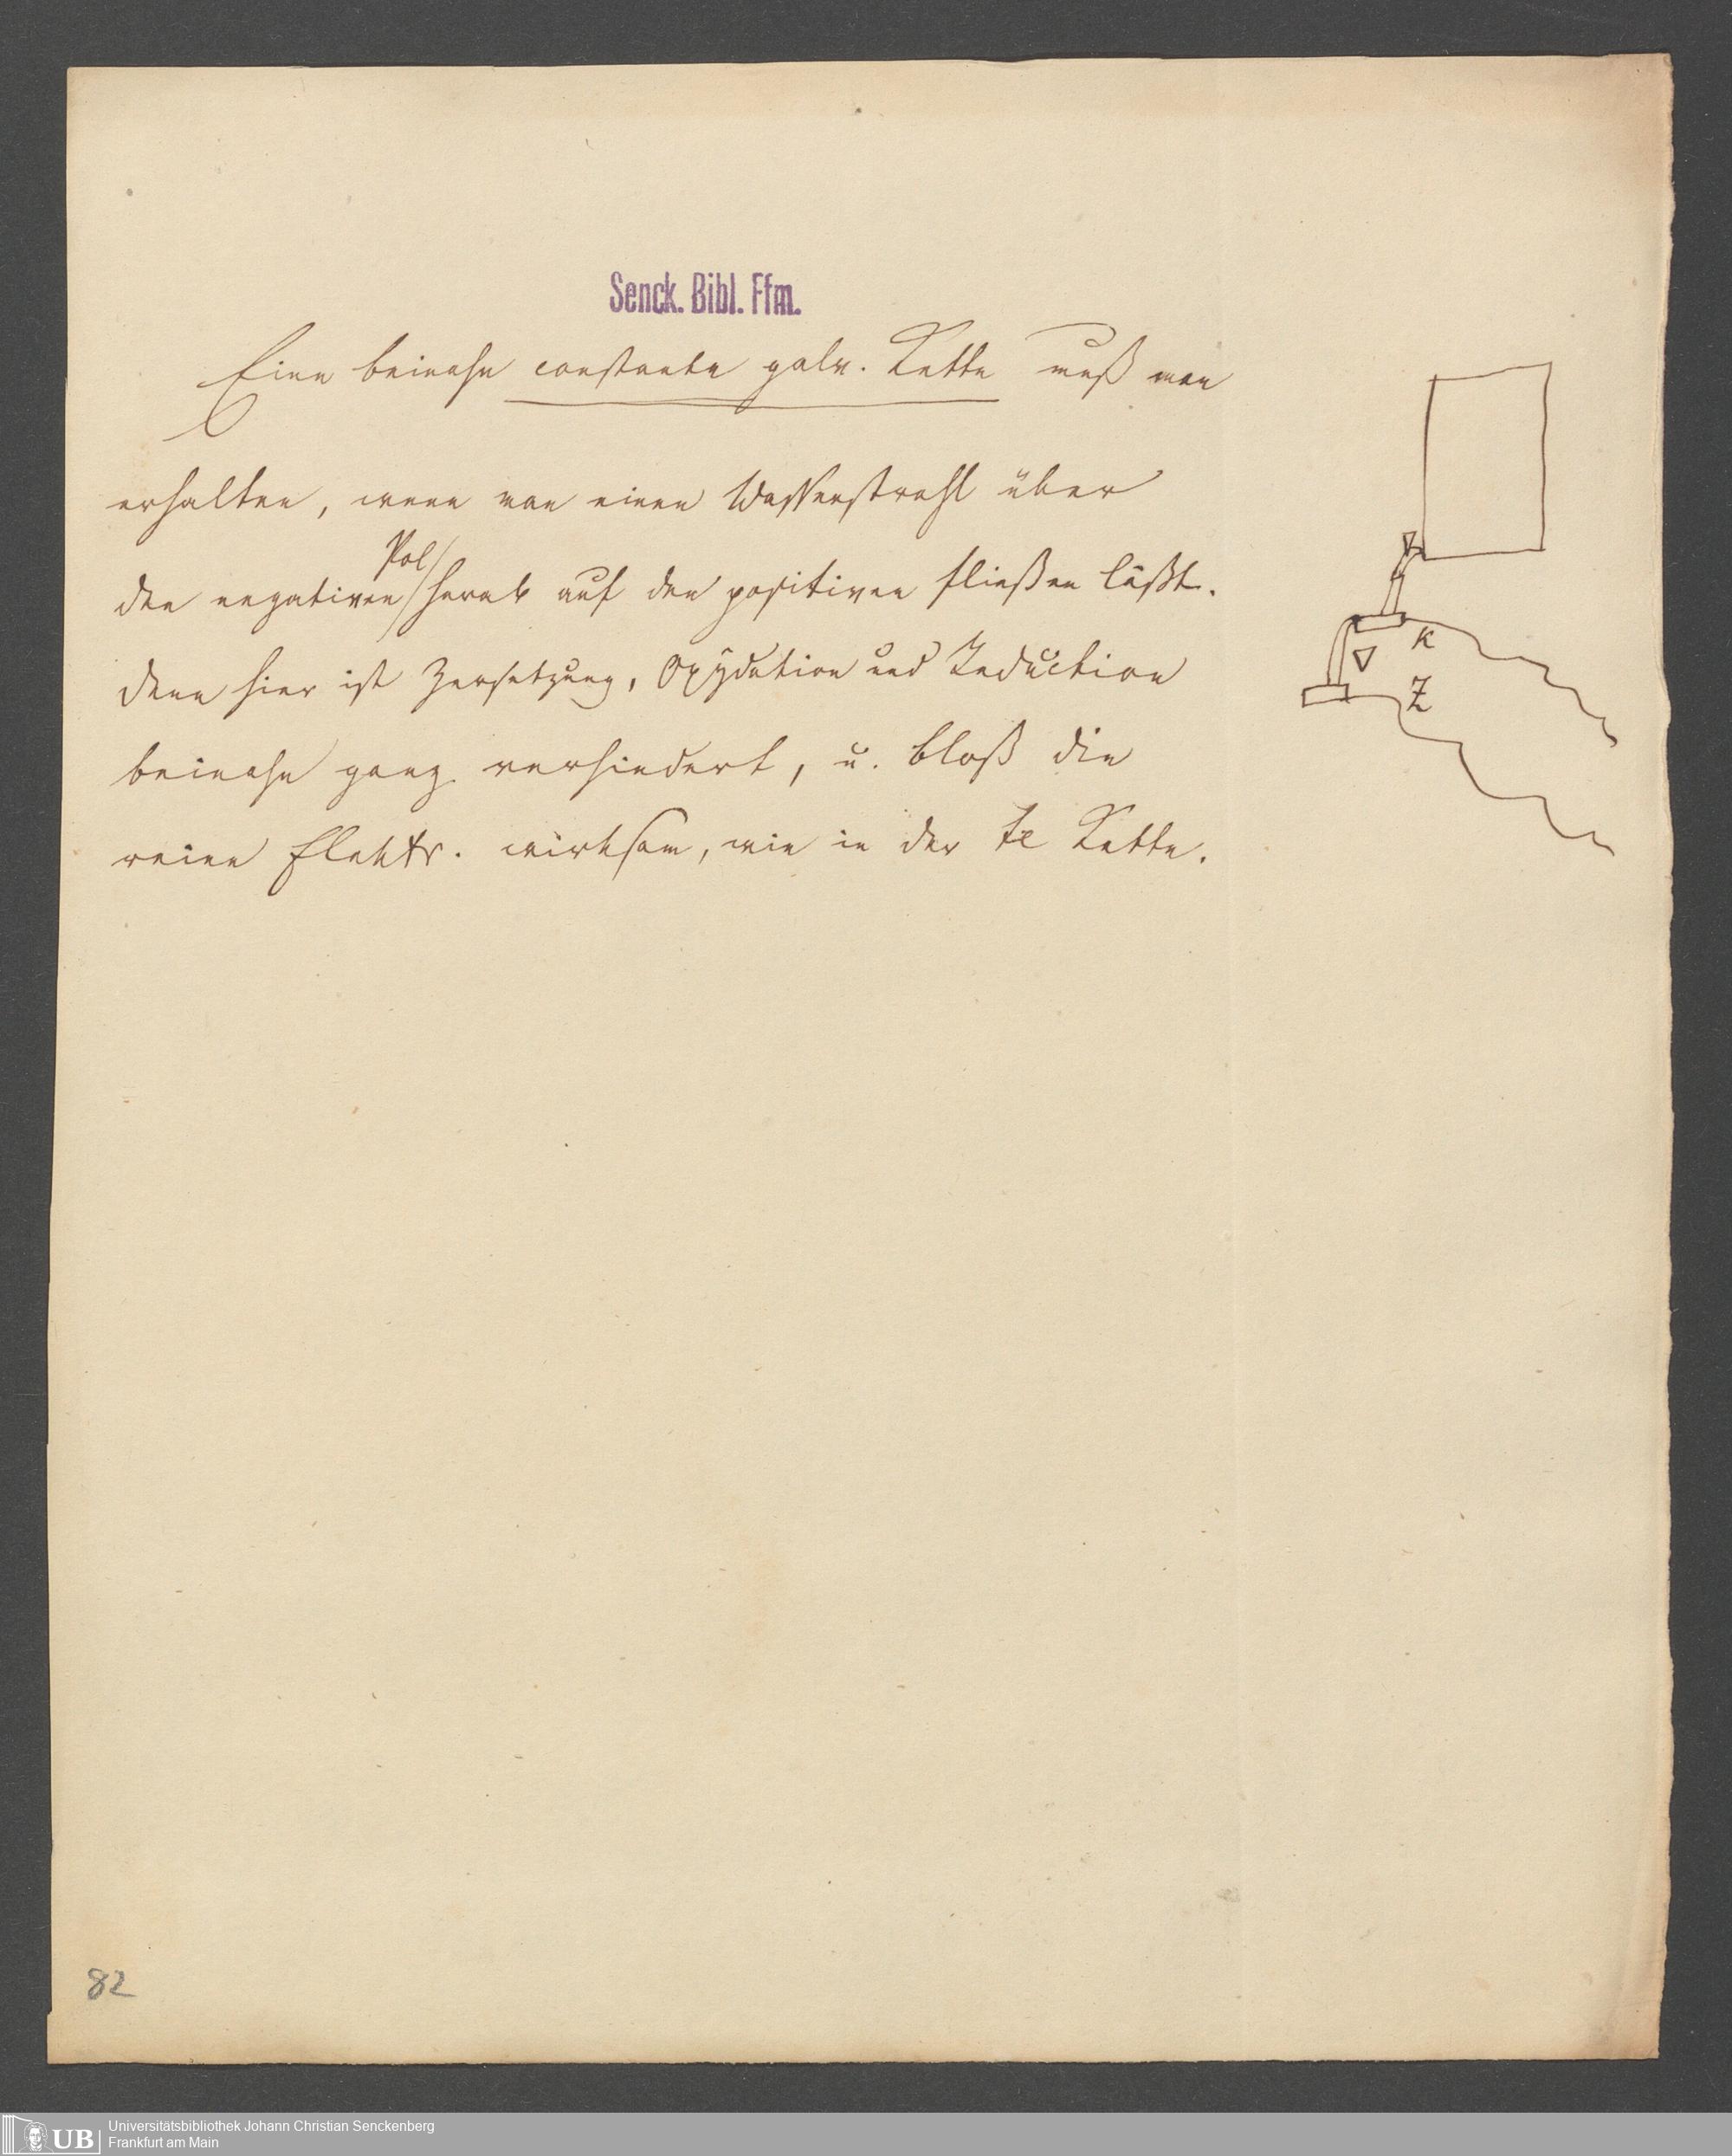 Senck. Bibl. Ffm.
Eine beinahe constante galv. Kette muß man
erhalten, wenn man einen Wasserstrahl über
den negativen Pol herab auf den positiven fließen läßt.
denn hier ist Zersetzung, Oxydation und Reduction
beinahe ganz verhindert, u. bloß die
reine Elektr. wirksam, wie in der Kette.
K
Z
82
UB
Universitätsbibliothek Johann Christian Senckenberg
Frankfurt am Main